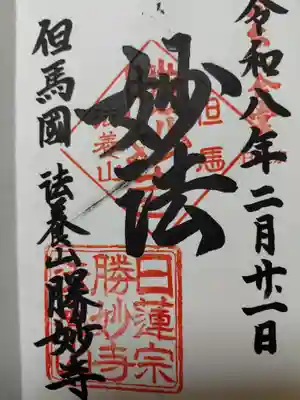 令和八年二月廿一日
妙法
但馬國 法養山 勝妙寺
但馬
法養山
日蓮宗
勝妙寺